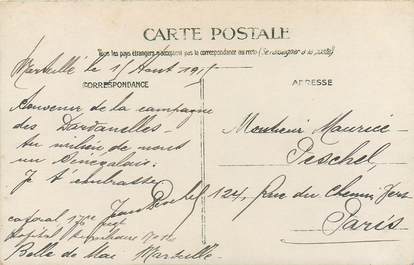 CARTE POSTALE
Tous les pays étrangers n'acceptent pas la correspondance au recto (Se renseigner à la poste)
Marseille le 15 Aout 1915
CORRESPONDANCE
Souvenir de la campagne
des Dardanelles -
Au milieu de nous
un Senegalais.
Je t'embrasse
Jean Peschel
caporal 176e
hopital
Belle de Mai Marseille
ADRESSE
Monsieur Maurice
Peschel,
124, Rue du Chemin Vert
Paris